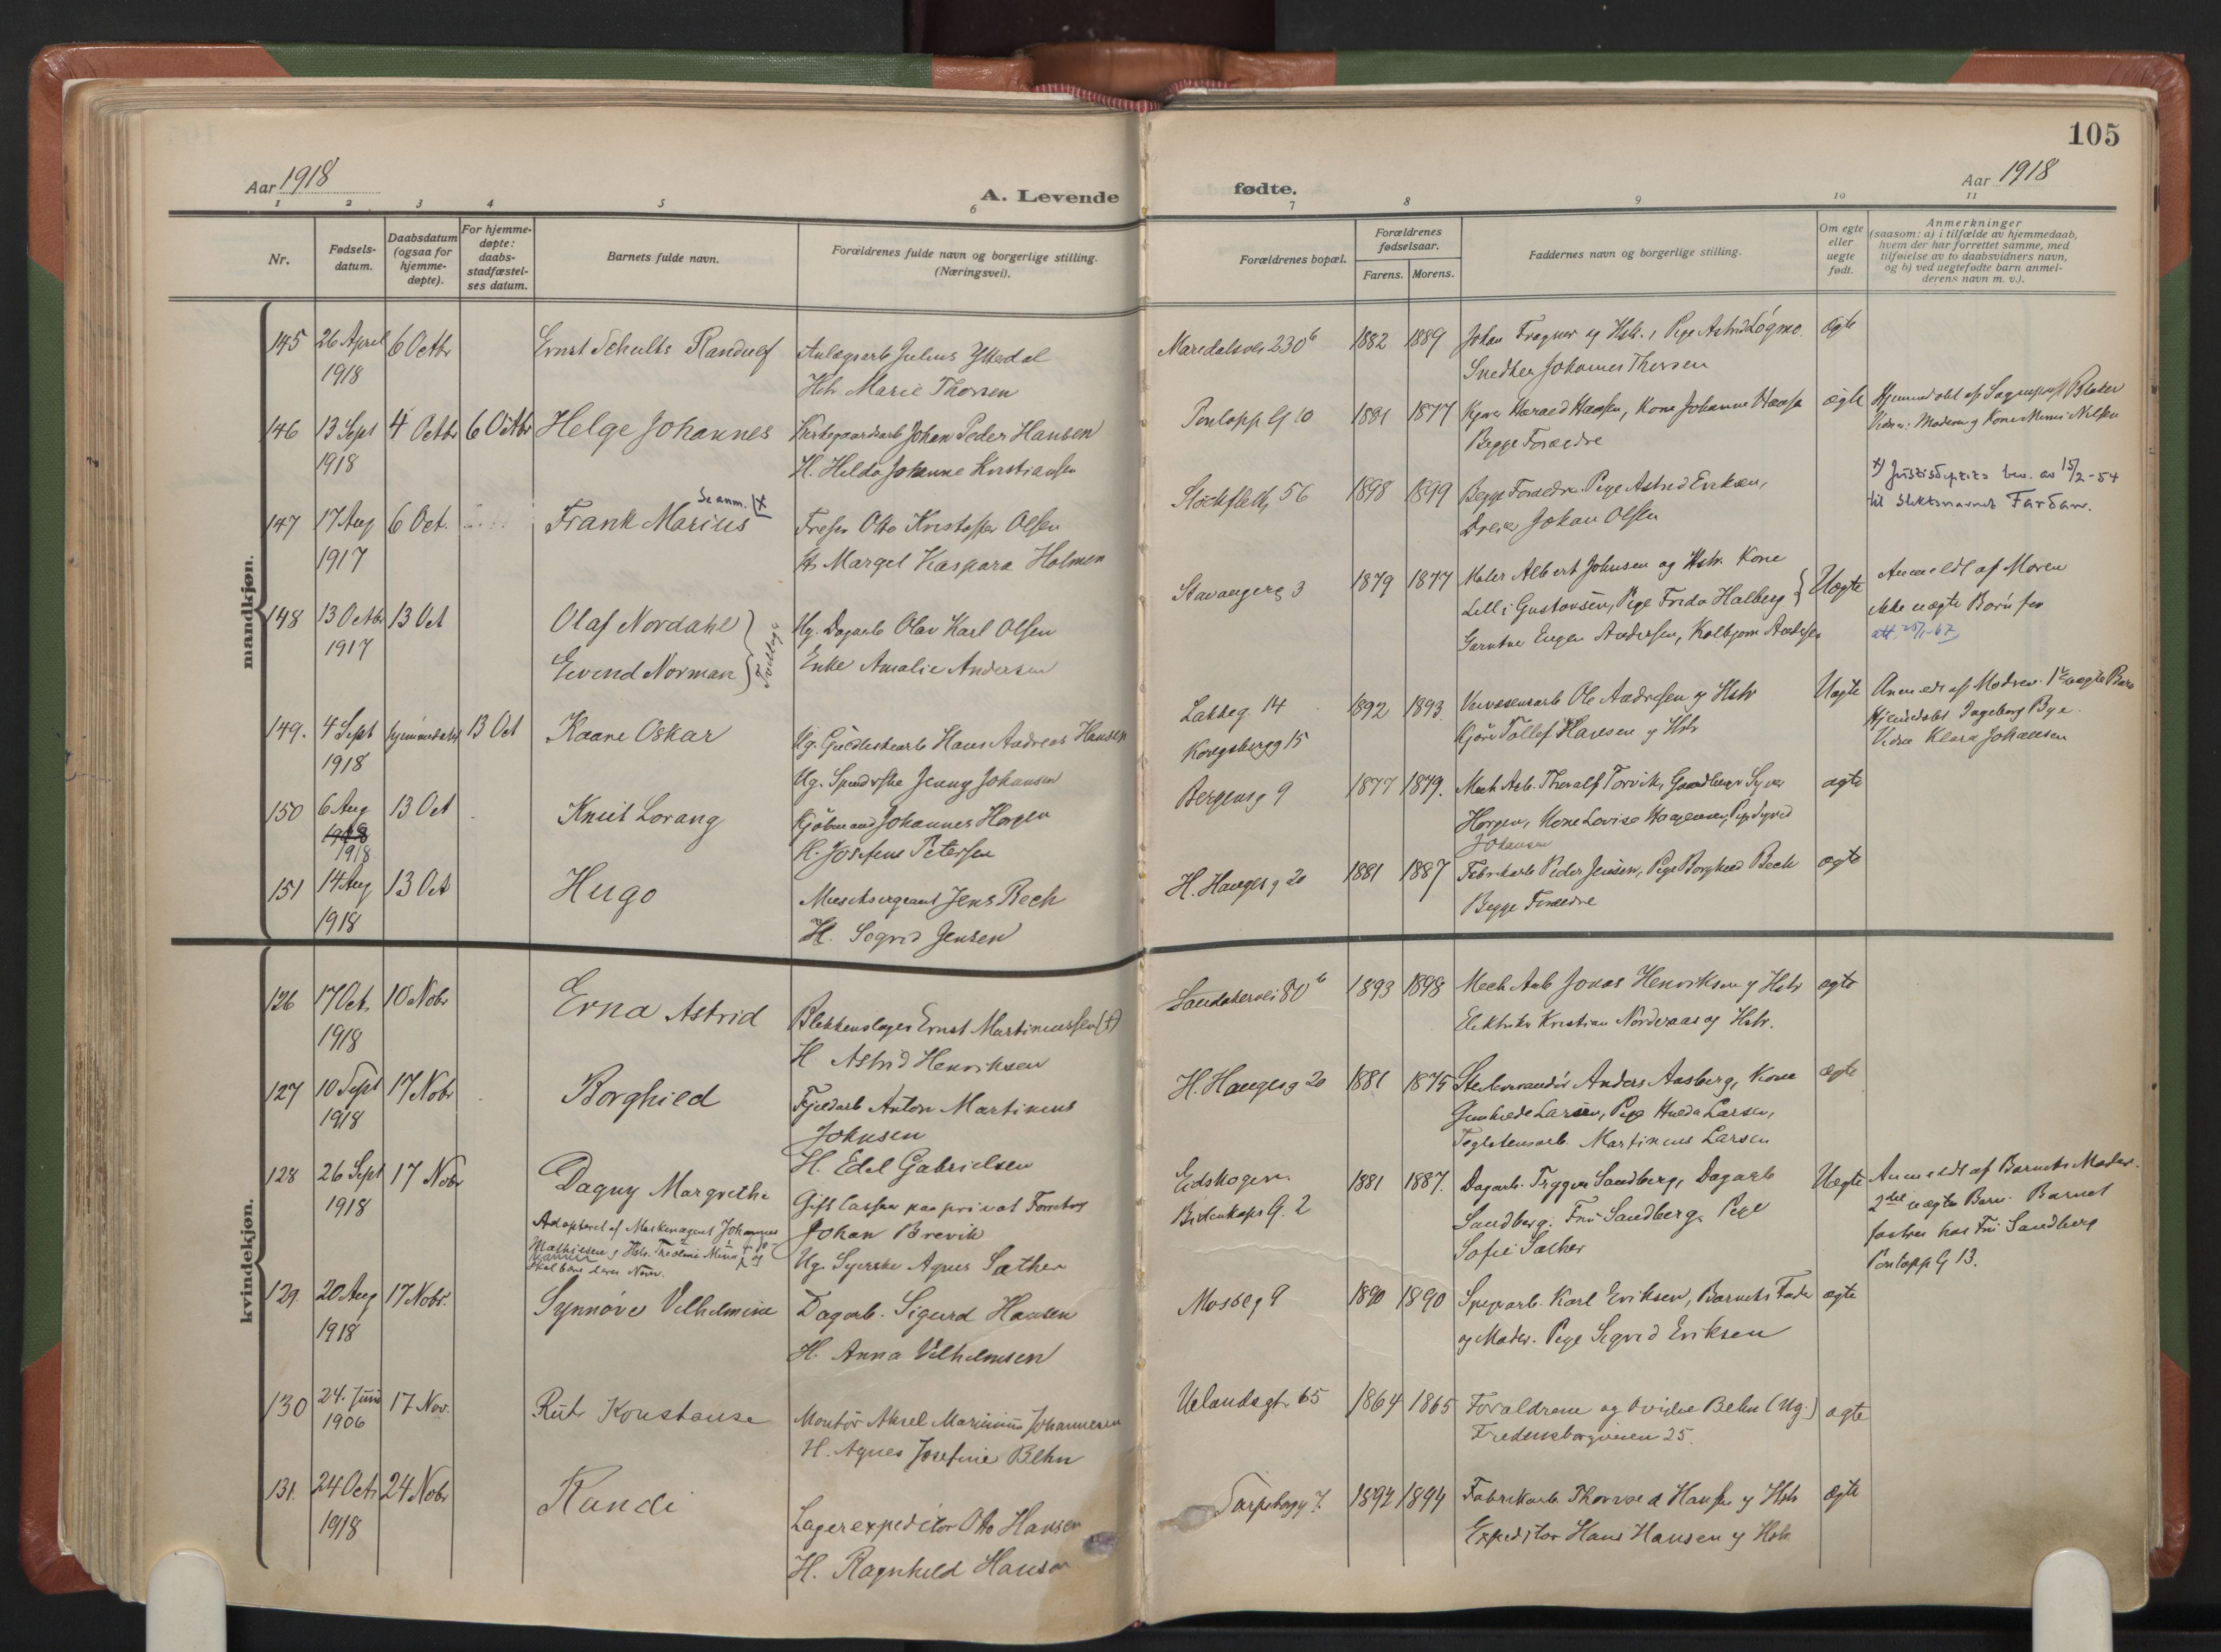 105
Aar 1918
A. Levende
fødte.
Aar 1918
1 2 3 4 5 6 7 8 9 10 11
Nr.
Fødsels-
datum.
Daabsdatum
(ogsaa for
hjemme-
døpte).
For hjemme-
døpte:
daabs-
stadfæstel-
ses datum.
Barnets fulde navn.
Forældrenes fulde navn og borgerlige stilling.
(Næringsvei).
Forældrenes bopæl.
Forældrenes
fødselsaar.
Farens. Morens.
Faddernes navn og borgerlige stilling.
Om egte
eller
uegte
født.
Anmerkninger
(saasom: a) i tilfælde av hjemmedaab,
hvem der har forrettet samme, med
tilføielse av to daabsvidners navn,
og b) ved uegtefødte barn anmel-
derens navn m. v.).
mandkjøn.
145 26 April 6 Octbr Ernst Schults Randulf Anlægsarb Julius
1918 Hstr. Marie Thorsen
Maridalsvei 230 b 1882 1889 Johan Fragner og Hstr., Pige Astrid Løgmo ægte
Snedker Johannes Thorsen
146 13 Sept 4 Octbr 6 Octbr Helge Johannes Kirkegaardsarb Johan Peder Hansen
1918 H. Hilda Johanne Kristiansen
Pontopp G 10 1881 1877 Kjører Harald Hansen, Kone Johanne Hansen ægte Hjemmedøbt af Sogneprest Blaker
Begge Forældre
Vidner: Moderen og Kone Minni Nilsen
147 17 Aug 6 Oct. Frank Marius Se anm. x Freser Otto Kristoffer Olsen
1917 H. Margel Kaspara Holmen
Stockfleths 56 1898 1899 Begge Forældre Pige Astrid Eriksen,
Dreier Johan Olsen
x) Justisdeptets bev. av 15/2-54
til slektsnavnet Fardan.
148 13 Octbr 13 Oct Olaf Nordahl
1917 Eivend Norman Tvillinger
Ug. Dagarb Olav Karl Olsen
Enke Amalie Andersen
Stavangerg 3 1879 1877 Maler Albert Johnsen og Hstr. Kone
Lilli Gustavsen, Pige Frida Halberg Uægte
Gartner Eugen Andersen, Kolbjørn Andersen
Anmeldt af Moren
att. 25/1-67
149. 4 Sept hjemmedøbt 13 Oct Kaare Oskar Ug. Gjørtlerarb Hans Andreas Hansen
1918 Ug. Jenny Johansen
Lakkeg. 14
Kongsbergg 15
1892 1893 Ole Andresen og Hstr Uægte
Kjører Tollef Hansen og Hstr
Anmeldt af Moderen. 1ste uægte Barn
Hjemmedøbt Ingeborg Bye.
Vidne Klara Johansen
150 6 Aug 13 Oct Knut Lorang Kjøbmand Johannes Horgen
1918 H. Josefine Petersen
Bergensg 9 1877 1879. Mech Arb. Thoralf Torvik, Syver ægte
Horgen, Kone Lovise Haagensen, Pige Sigrid
Johansen
151 14 Aug 13 Oct Hugo Musiksergeant Jens Bech
1918 H. Sigrid Jensen
H. Haugesg 20 1881 1887 Fabrikarb Peder Jensen, Pige Borghild Bech ægte
Begge Forældre
kvindekjøn.
126 17 Oct. 10 Nobr Erna Astrid Blikkenslager Ernst Martinussen (+)
1918 H Astrid Henriksen
Sandakervei 80 b 1893 1898 Mech Arb Jonas Henriksen og Hstr ægte
Elektriker Kristian Norderaas og Hstr.
127 10 Sept 17 Nobr Borghild Fjeldarb Anton Martinius
1918 Johnsen
H. Edel Gabrielsen
H. Haugesg 20 1881 1875 Anders Aasberg, Kone ægte
Gunhilde Larsen, Pige Hulda Larsen,
Teglstensarb. Martinius Larsen
128 26 Sept 17 Nobr Dagny Margrethe
1918
Adopteret af Maskinagent Johannes
Mathisen og Hstr.
Skal bære deres Navn.
Gift Casserer paa privat
Johan Brevik
Ug. Syerske Agnes Sæther
Eidskogen.
Bidenkaps G. 2
1881 1887. Dagarb. Trygve Sandberg, Dagarb Uægte
Sandberg. Fru Sandberg. Pige
Sofie Sæther
Anmeldt af Barnets Moder.
2det uægte Barn. Barnet
fostres hos Fru Sandberg
Pontopp G 13.
129. 20 Aug 17 Nobr. Synnøve Vilhelmine Dagarb. Sigurd Hansen
1918 H. Anna Vilhelmsen
Mosseg 9 1890 1890 Karl Eriksen, Barnets Fader ægte
og Moder. Pige Sigrid Eriksen
130 24. Juni 17 Nov. Rut Konstanse Montør Aksel Marinius Johannesen
1906 H. Agnes Josefine Behn
Uelandsgt. 65 1864 1865 Forældrene og Ovidie Behn (Ug.) ægte
Fredensborgveien 25.
131. 24 Oct 24 Nobr Randi Lagerexpeditør Otto Hansen
1918 H. Ragnhild Hansen
Sarpsborgg 7. 1892 1894 Fabrikarb Thorvald Hansen og Hstr ægte
Expeditør Hans Hansen og Hstr.